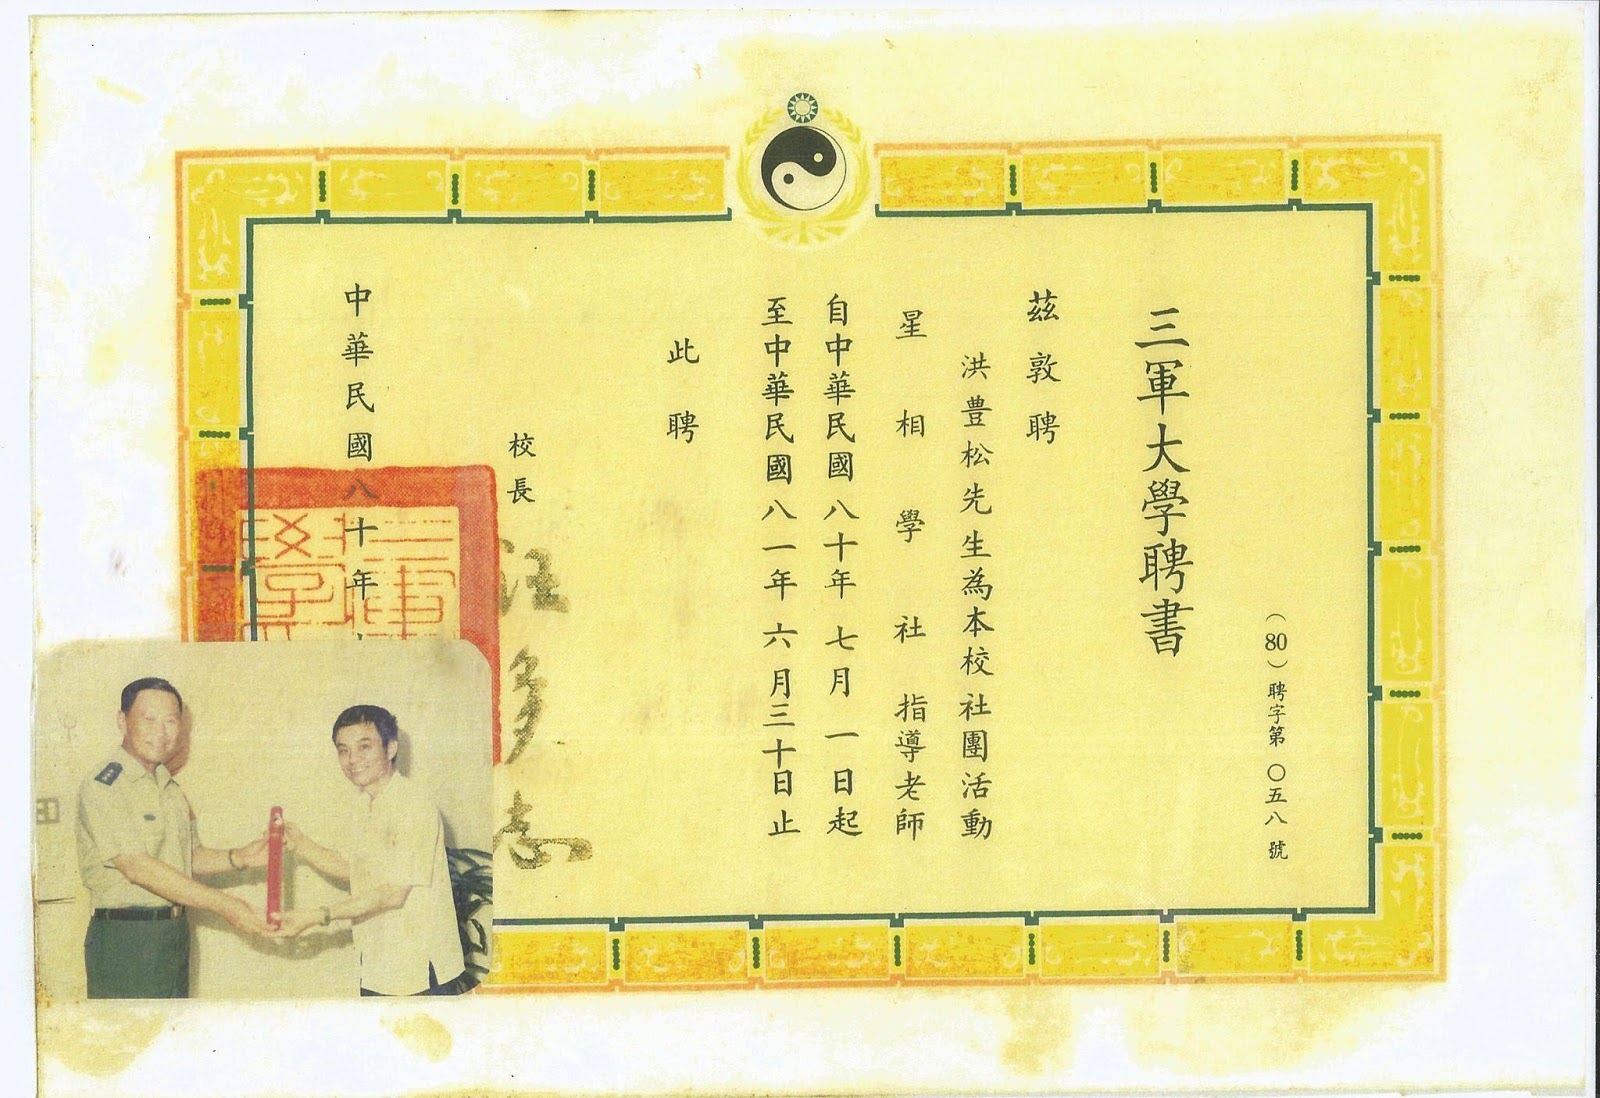 三軍大學聘書
（80）聘字第〇五八號
茲敦聘
洪豊松先生為本校社團活動
星相學社指導老師
自中華民國八十年七月一日起
至中華民國八一年六月三十日止
此聘
校長
汪多志
中華民國八十年